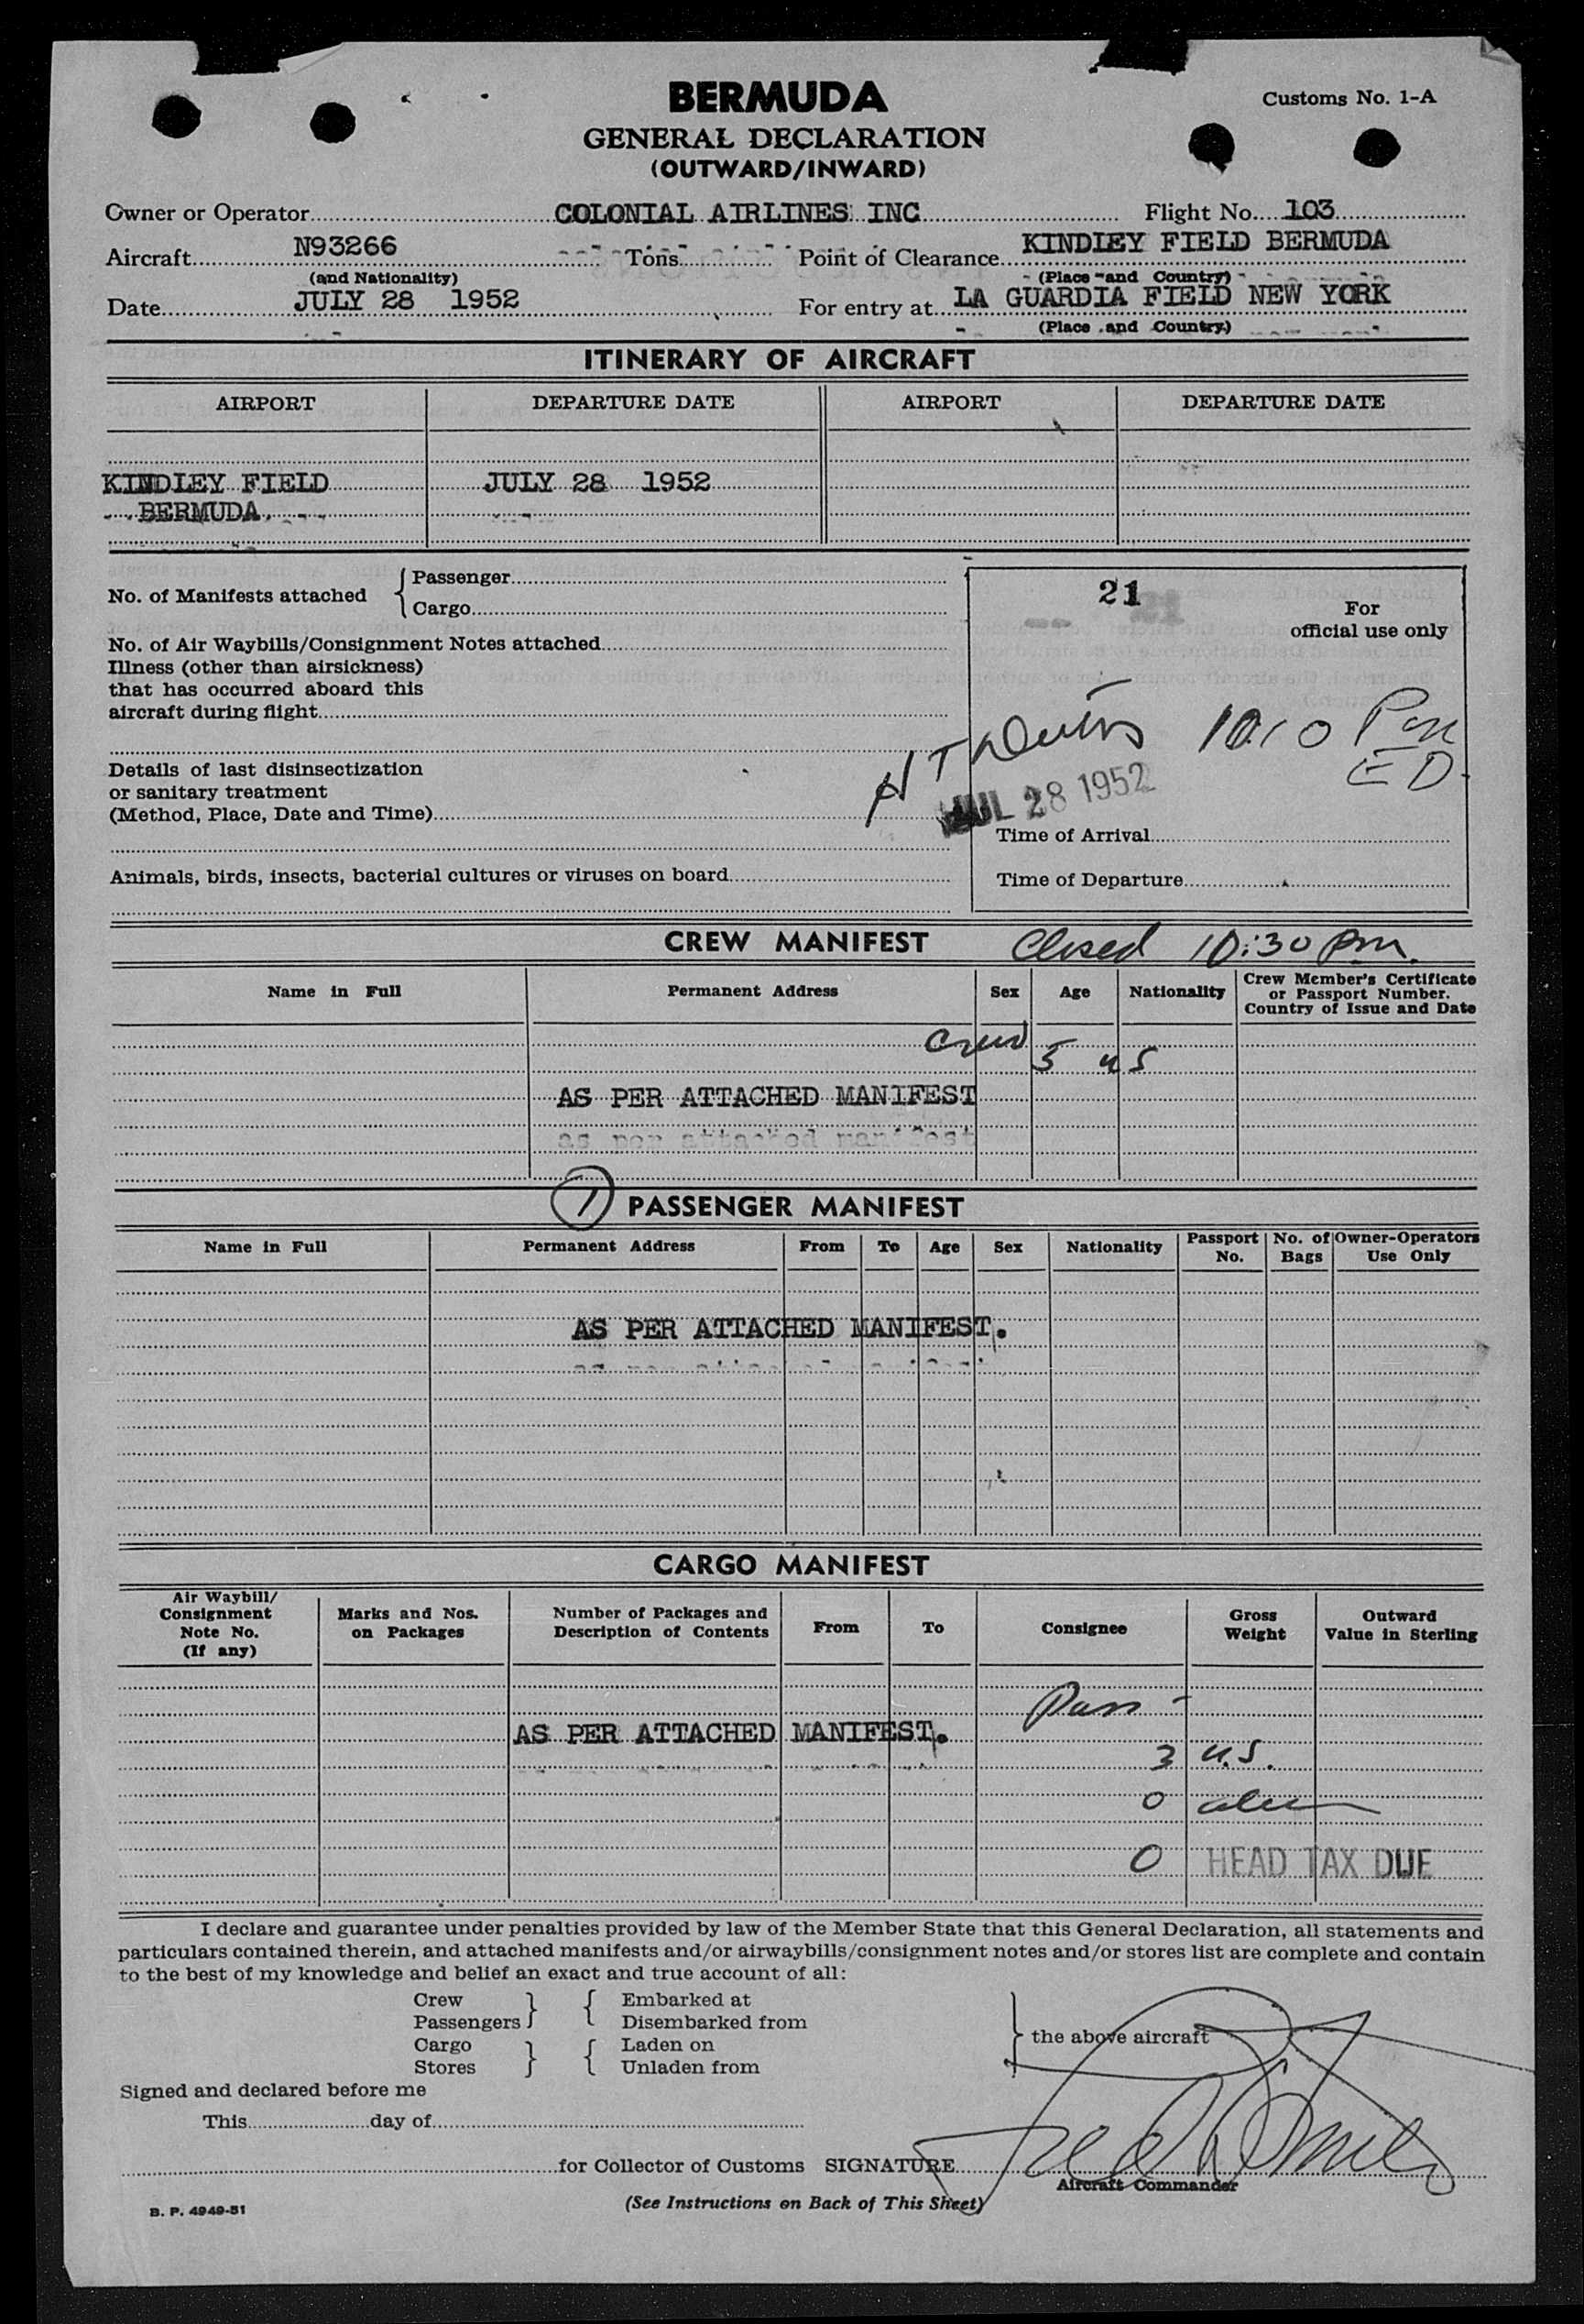 BERMUDA
Customs No. 1-A
GENERAL DECLARATION
(OUTWARD/INWARD)
Owner or Operator COLONIAL AIRLINES INC Flight No. 103
Aircraft N93266 Tons Point of Clearance KINDLEY FIELD BERMUDA
(and Nationality) (Place and Country)
Date JULY 28 1952 For entry at LA GUARDIA FIELD NEW YORK
(Place and Country)
ITINERARY OF AIRCRAFT
AIRPORT DEPARTURE DATE AIRPORT DEPARTURE DATE
KINDLEY FIELD JULY 28 1952
BERMUDA
No. of Manifests attached { Passenger
Cargo
21
For
official use only
No. of Air Waybills/Consignment Notes attached
Illness (other than airsickness)
that has occurred aboard this
aircraft during flight
10:10 Pm
ED.
Details of last disinsectization
or sanitary treatment
(Method, Place, Date and Time)
JUL 28 1952
Time of Arrival
Animals, birds, insects, bacterial cultures or viruses on board
Time of Departure
CREW MANIFEST Closed 10:30 Pm.
Name in Full Permanent Address Sex Age Nationality Crew Member's Certificate
or Passport Number.
Country of Issue and Date
Crew
5 U S
AS PER ATTACHED MANIFEST
as per attached manifest
1 PASSENGER MANIFEST
Name in Full Permanent Address From To Age Sex Nationality Passport No. No. of Bags Owner-Operators Use Only
AS PER ATTACHED MANIFEST.
CARGO MANIFEST
Air Waybill/
Consignment
Note No.
(If any)
Marks and Nos.
on Packages
Number of Packages and
Description of Contents
From To Consignee Gross Weight Outward Value in Sterling
Pass -
AS PER ATTACHED MANIFEST.
3 U.S.
0 alien
0 HEAD TAX DUE
I declare and guarantee under penalties provided by law of the Member State that this General Declaration, all statements and
particulars contained therein, and attached manifests and/or airwaybills/consignment notes and/or stores list are complete and contain
to the best of my knowledge and belief an exact and true account of all:
Crew } { Embarked at
Passengers Disembarked from
} the above aircraft
Cargo } { Laden on
Stores Unladen from
Signed and declared before me
This day of
for Collector of Customs SIGNATURE
Aircraft Commander
B. P. 4949-51
(See Instructions on Back of This Sheet)